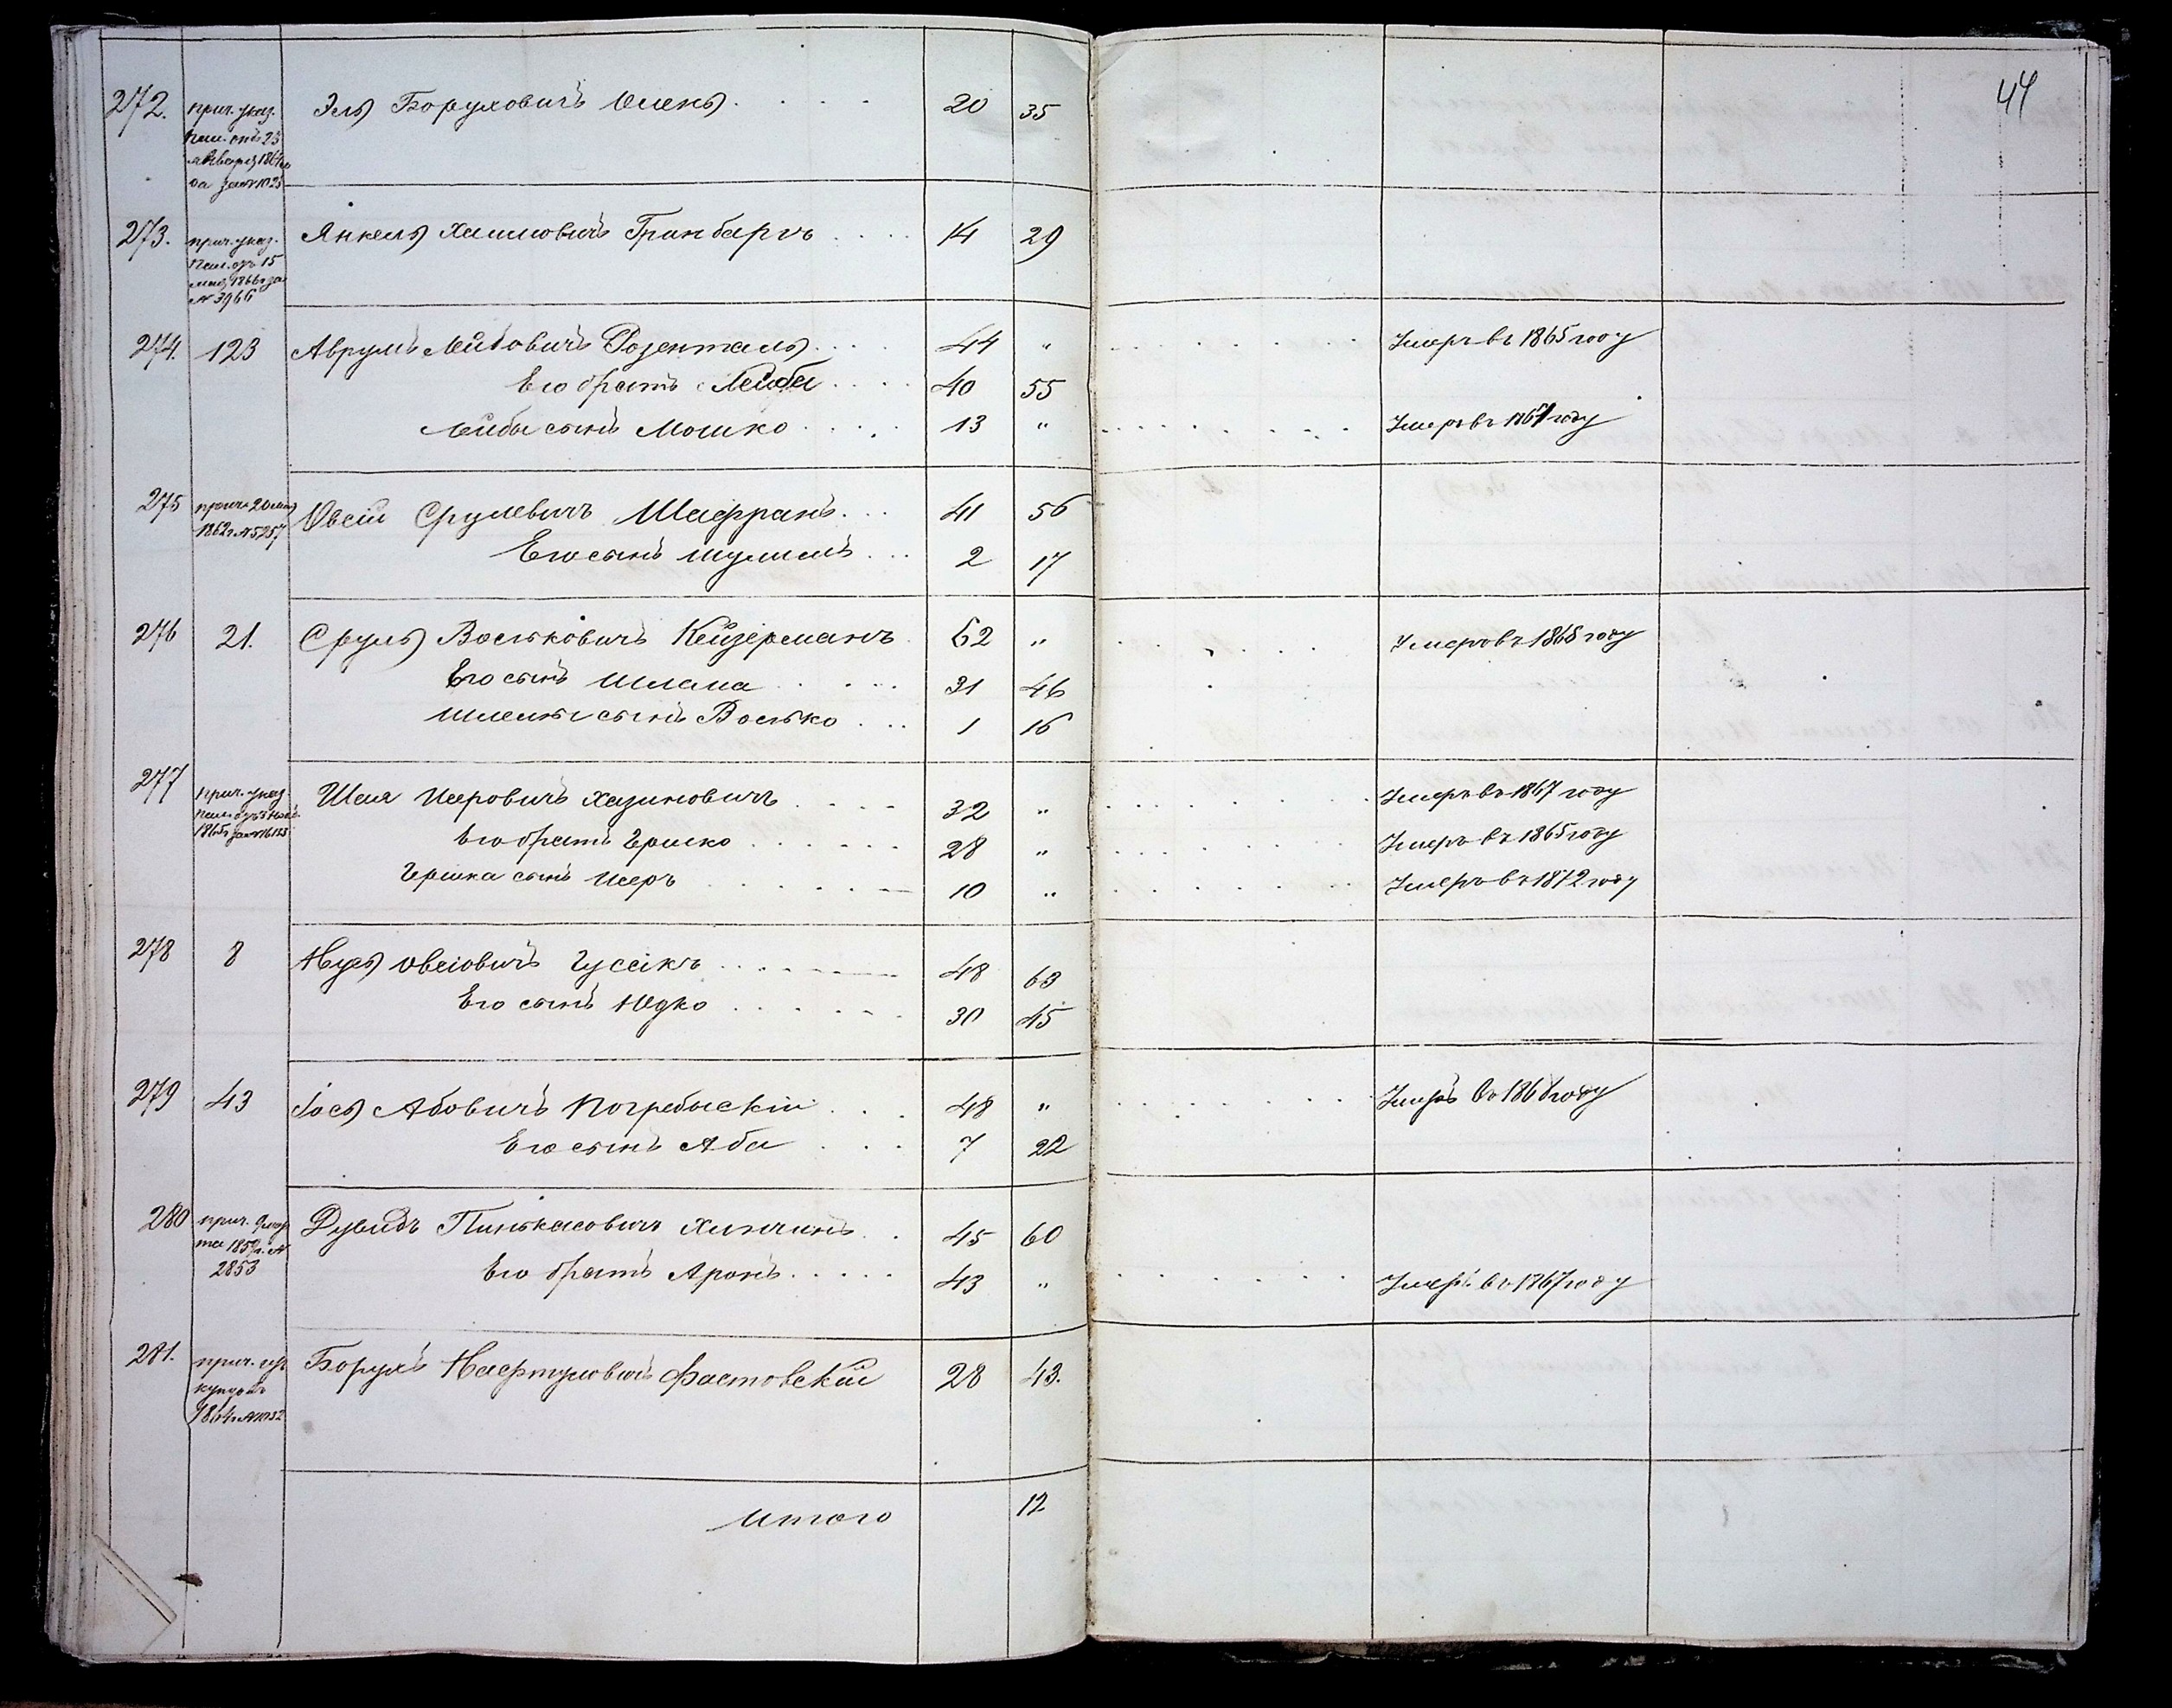 44
272. прич. указ. Эль Боруховичъ 20 35
Пал. отъ 23
января 1864 го
да за № 1025
273. прич. указ. Янкель Хаимовичъ Гринбаргъ 14 29
Пал. отъ 15
мая 1866 г за
№ 3966
274. 123 Аврумъ Лейбовичъ Розенталь 44 " Умеръ въ 1865 году
Его братъ Лейба 40 55
Лейбы сынъ Мошко 13 " Умеръ въ 1861 году
275 прич. 20 мая Овсій Срулевичъ Шафранъ 41 56
1862 г № 5257
Его сынъ Шулимъ 2 17
276 21. Сруль Вольковичъ Кейзерманъ 62 " Умеръ въ 1868 году
Его сынъ Шлема 31 46
Шлемы сынъ Волько 1 16
277 прич. указ. Шая Меровичъ Хазиновичъ 32 " Умеръ въ 1867 году
1865 г за № 16133
Его братъ Гершко 28 " Умеръ въ 1865 году
Гершка сынъ Меръ 10 " Умеръ въ 1872 году
278 8 Нухъ Овсіовичъ Гусикъ 48 63
Его сынъ Юдко 30 45
279 43 Іось Абовичъ Погребыскій 48 " Умеръ въ 1868 году
Его сынъ Аба 7 22
280 прич. 9 мар Дувидъ Пинькасовичъ 45 60
та 1859 г. №
2853
Его братъ Аронъ 43 " Умеръ въ 1867 году
281. прич. изъ Борухъ Нафтуловичъ Фастовскій 28 43.
купцовъ
1864 г № 1032
Итого 12